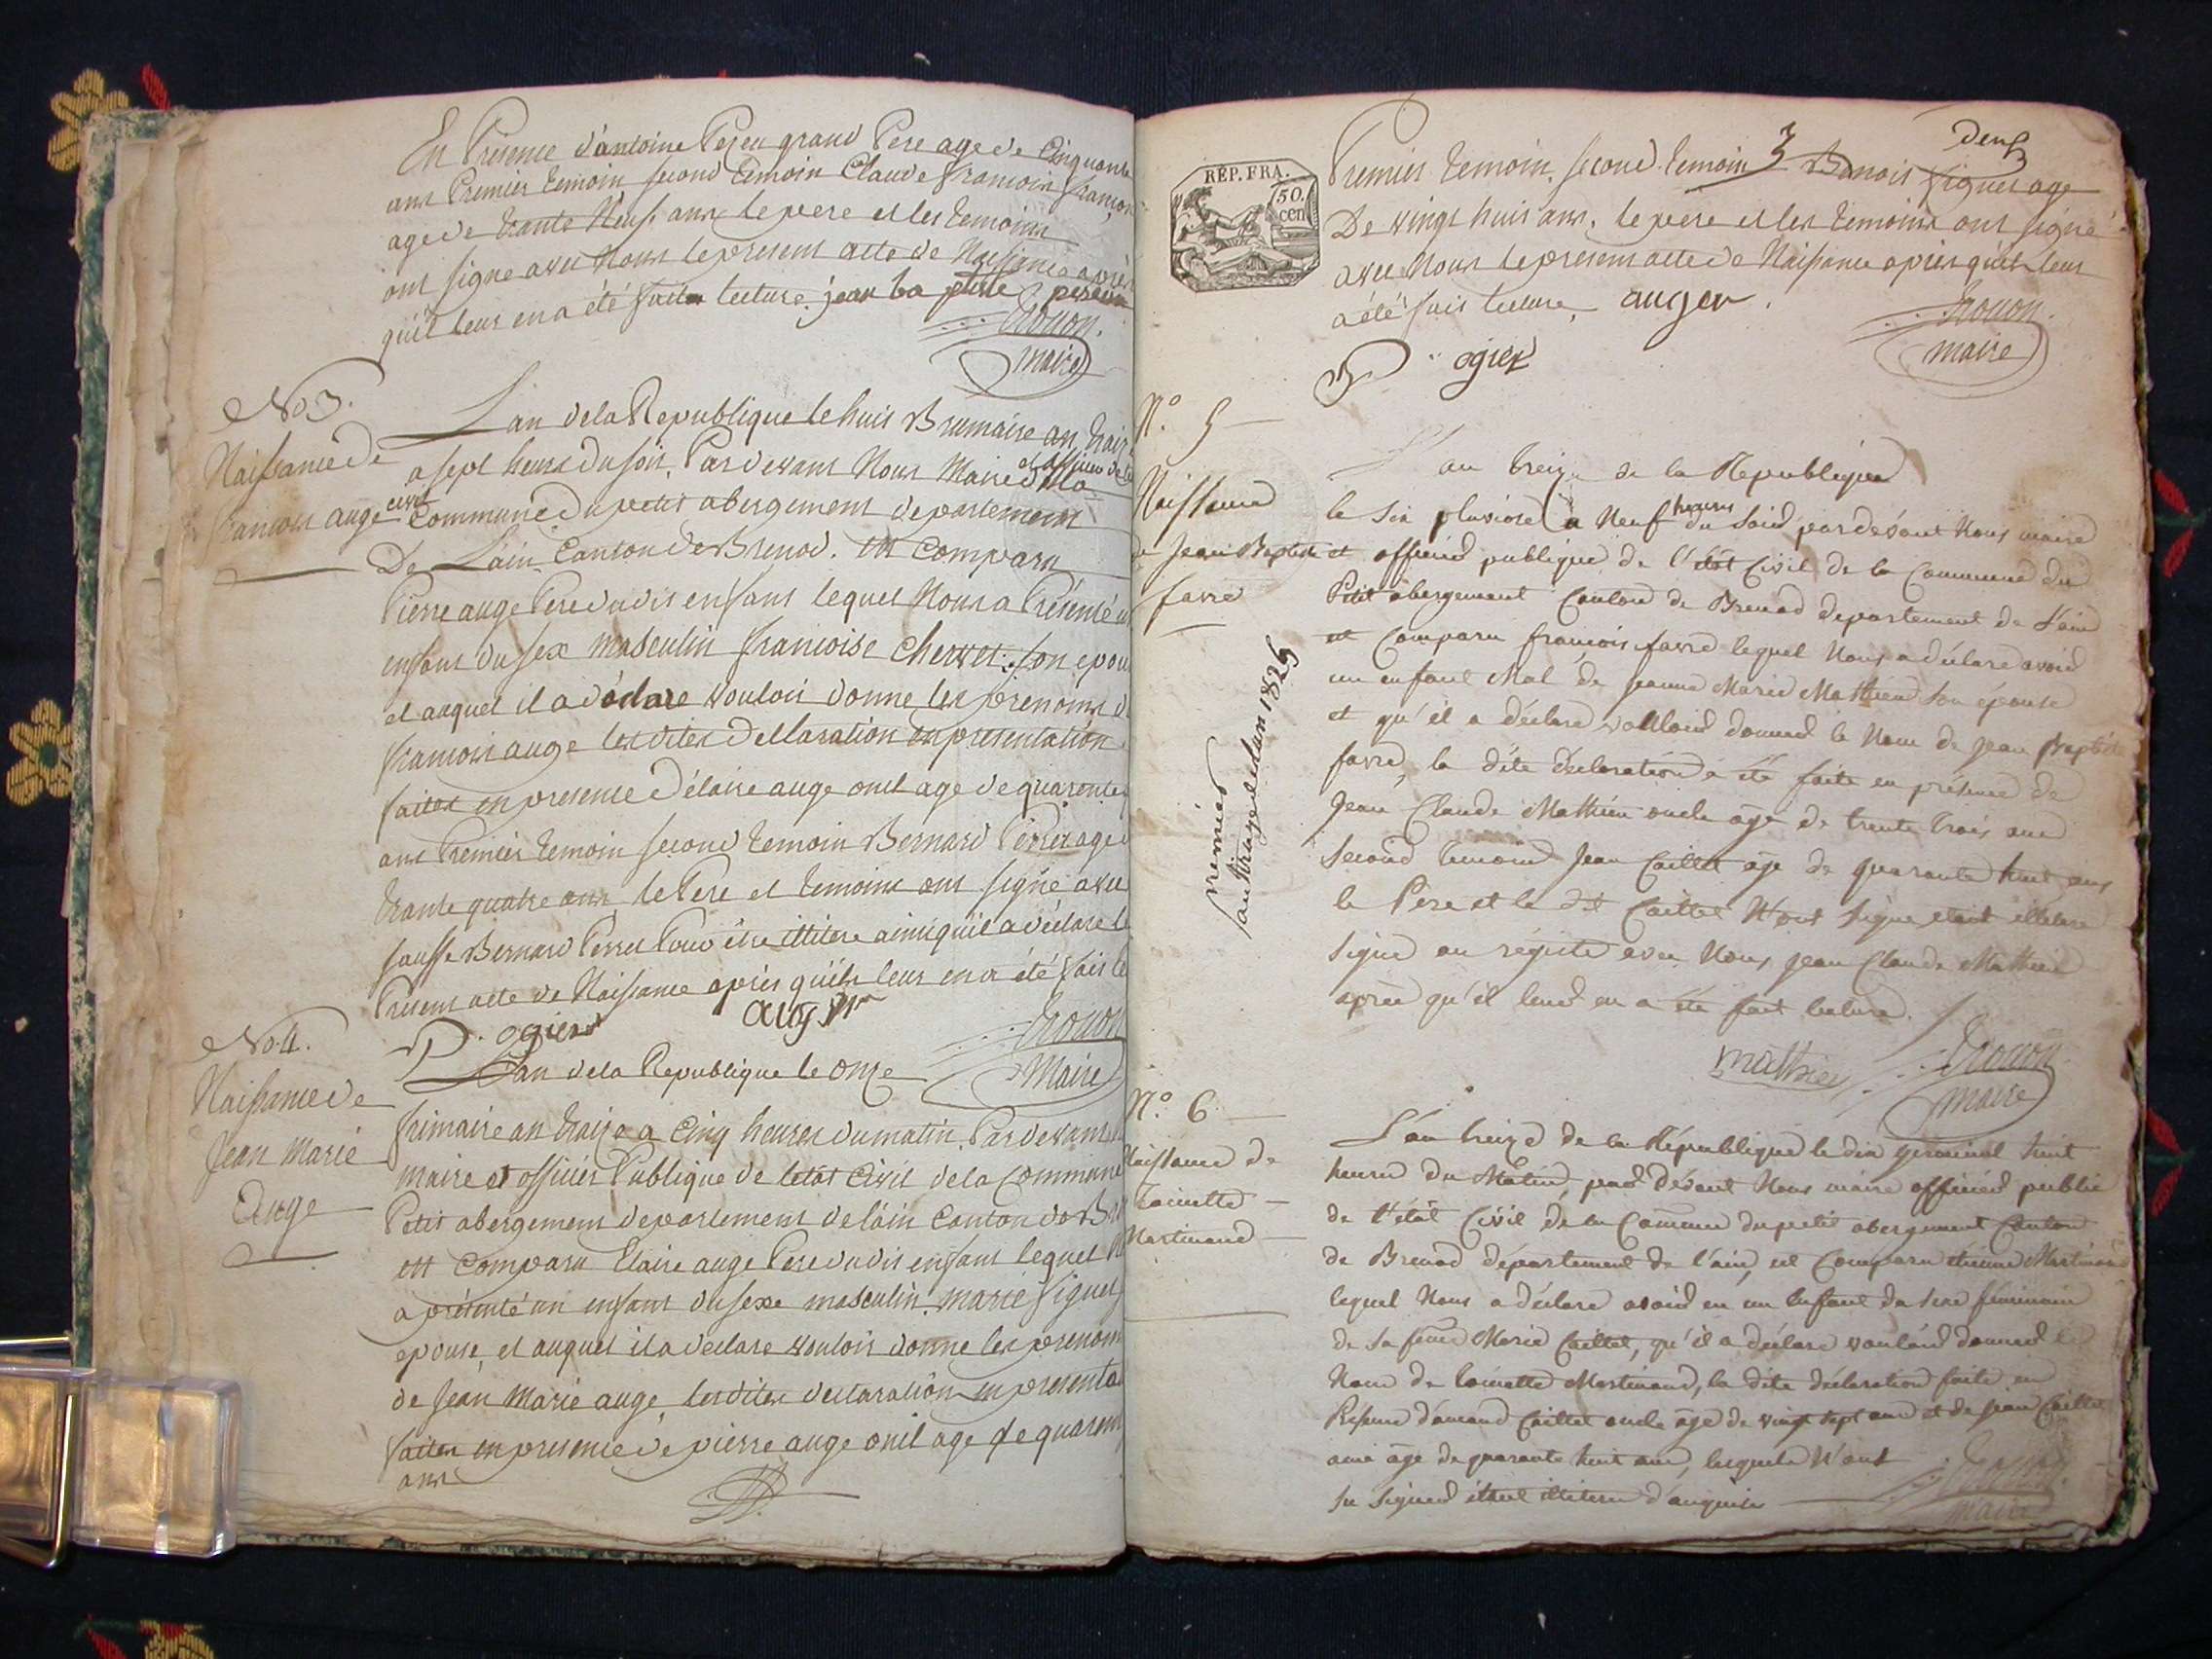 En Presence d'antoine Peseu grand Pere age de Cinquante
ans Premier temoin second temoin Claude francois francon
age de trante Neuf ans le pere et les temoins
ont signe avec Nous le present acte de Naissance après
qu'il leur en a été faite lecture. jean ba ptiste
Maire
No 3.
Naissance de
francois auge
Lan de la Republique le huit Brumaire an traize
a sept heure du soir. Par devant Nous Maire et officier de
civil Commune du petit abergement departement
De Lain Canton de Brenod. est Comparu
Pierre auge Pere du dit enfant lequel Nous a Présenté un
enfant du sex masculin francoise Chervet son epou
et auquel il a déclare vouloir donne les prenoms de
francois auge les dites dellaration en presentation
faites en presence d'élaire auge oncl age de quarente
ans Premier temoin second temoin Bernard Perret age
trante quatre ans le Pere et temoins ont signé avec
sauffe Bernard Perret Pour être illitere ainsi quil a déclare le
Present acte de Naissance après qu'ils leur en a été fait le
P. ogier
Maire
No 4.
Naissance de
Jean Marie
Auge
Lan de la Republique le onze
frimaire an traize a Cinq heures du matin Par devant
maire et officier Publique de letât Civil de la Commune
Petit abergement departement de lain Canton de B
est Comparu Elaire auge Pere du dit enfant lequel
a présenté un enfant du sexe masculin marie figuet
epouse, et auquel il a declare vouloir donne les prenom
de Jean Marie auge, les dites declaration en presenta
faites en presence de pierre auge oncl age de quarent
ans
RÉP. FRA.
50.
cen
deux
3
Premier temoin. second temoin Benois figuet age
De vingt huit ans, le pere et les temoins ont signé
avec Nous le present acte de Naissance après quil leur
a été fait lecture. auger.
ogier
maire
N.o 5
Naissance
de Jean Baptiste
favre
L'an treize de la Republique
le six pluviose à Neuf heures du soir par devant Nous maire
et officier publique de l'etât Civil de la Commune du
Petit abergement Canton de Brenod departement de l'ain
est Comparu francois favre lequel Nous a déclare avoir
un enfant Mal de jeanne Marie Mathieu son épouse
et qu'il a déclare voulloir donner le Nom de jean Baptiste
favre, la dite déclaration a été faite en présence de
Jean Claude Mathieu oncle âgé de trente trois ans
second temoin Jean Caillet âgé de quarante huit ans
le Père et le dit Caillet N'ont signe etant illetere
signe au régistre avec Nous jean Claude Mathieu
après qu'il leur en a été fait lecture.
mathieu
maire
premier
1826
N.o 6
Naissance de
Martinand
L'an treize de la République le dix germinal huit
heure du Matin, par devant Nous maire officier public
de l'état Civil de la Commune du petit abergement Canton
de Brenod département de l'ain, est Comparu étienne Martinand
lequel Nous a déclare avoir eu un enfant du sexe féminin
de sa feme Marie Caillet, qu'il a déclare vouloir donner le
Nom de Martinand, la dite déclaration faite en
Présence d'amand Caillet oncle âgé de vingt sept ans et de jean Caillet
ami âgé de quarante huit ans, lesquels N'ont
su signer étant illitere d'enquis
maire